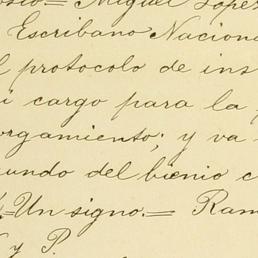 Miguel López
Escribano Naciona
l protocolo de ins
i cargo para la
orgamiento; y va
undo del bienio c
=Un signo.= Ram
y P.